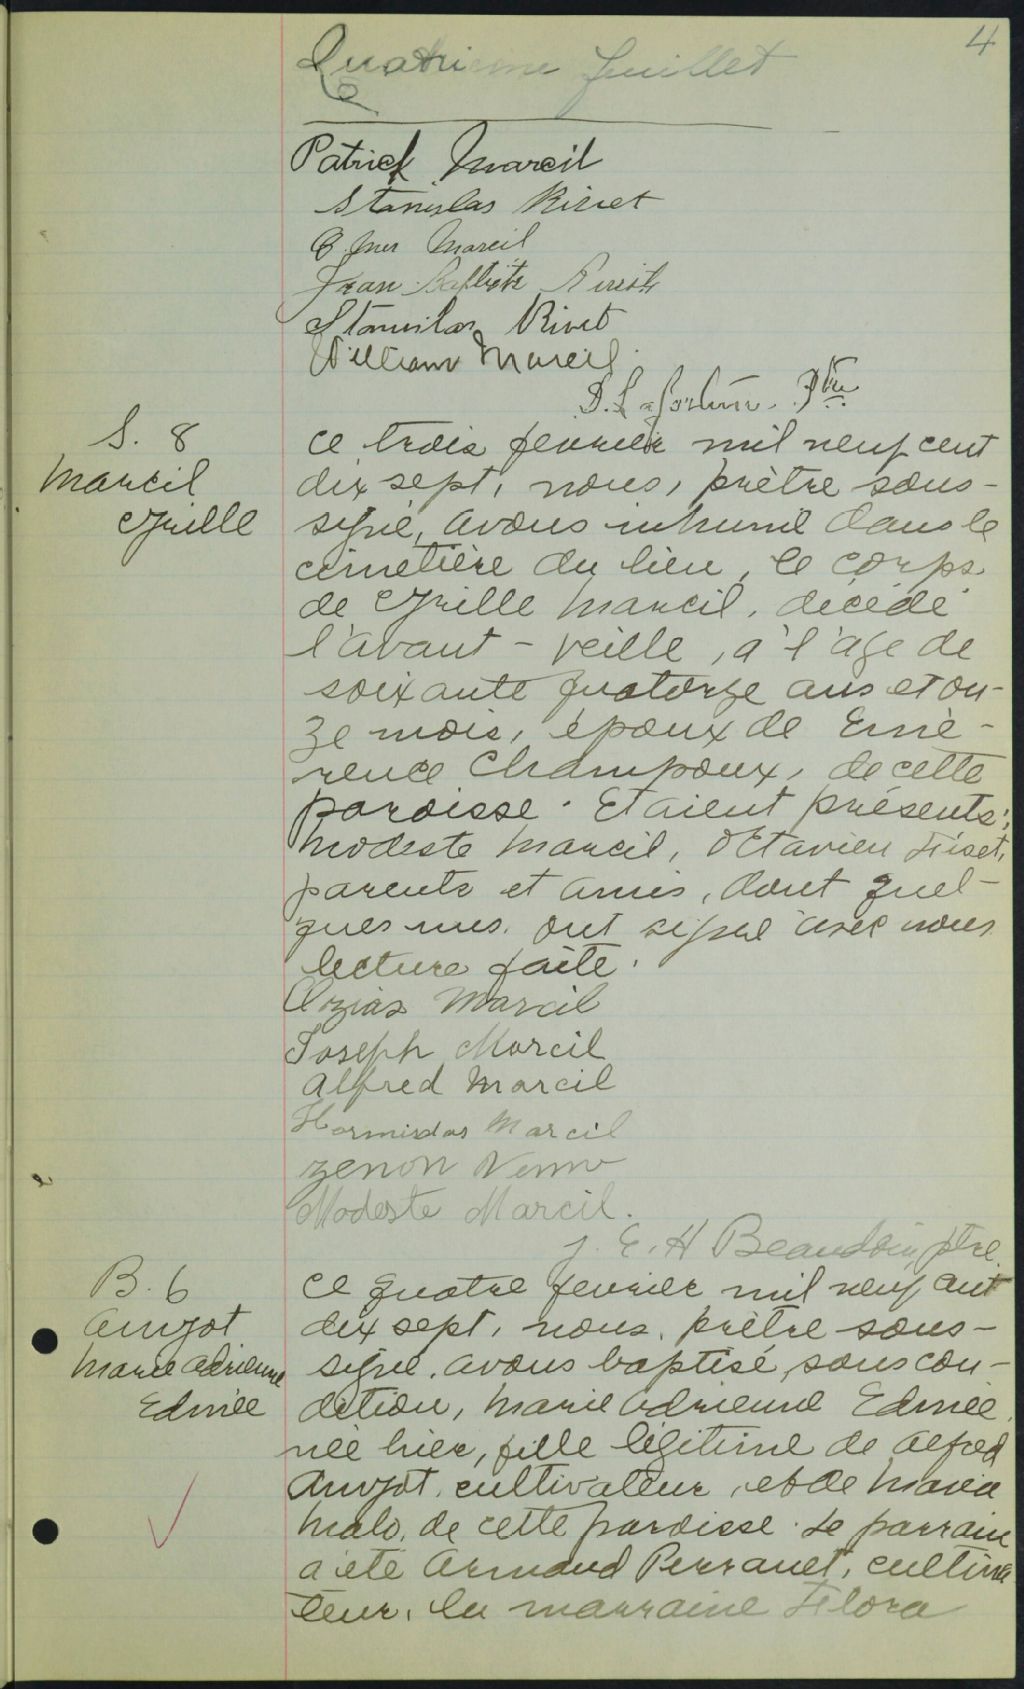 4
Quatrieme feuillet
Patrick Marcil
Stanislas Rivet
Omer Marcil
Jean Baptiste
Stanislas Rivet
William Marcil
D. Lafortune Ptre
S. 8
Marcil
Cyrille
Ce trois fevrier mil neuf cent
dix sept, nous, prêtre sous-
signé, avons inhumé dans le
cimetière du lieu, le corps
de Cyrille Marcil, décédé
l'avant-veille, à l'age de
soixante quatorze ans et on-
ze mois, époux de Emé-
rence Champoux, de cette
paroisse. Etaient présents:
Modeste Marcil, Octavien Fiset,
parents et amis, dont quel-
ques uns ont signé avec nous
lecture faite.
Ozias Marcil
Joseph Marcil
Alfred Marcil
Hormisdas Marcil
Zenon
Modeste Marcil.
J. E. H Beaudoin, ptre
B. 6
Amyot
Marie Adrienne
Edmée
Ce quatre fevrier mil neuf cent
dix sept, nous, prêtre sous-
signé, avons baptisé, sous con-
dition, Marie Adrienne Edmée
née hier, fille légitime de Alfred
Amyot, cultivateur, et de Maria
Malo, de cette paroisse. Le parrain
a été Armand Perrault, cultiva
teur, la marraine Flora